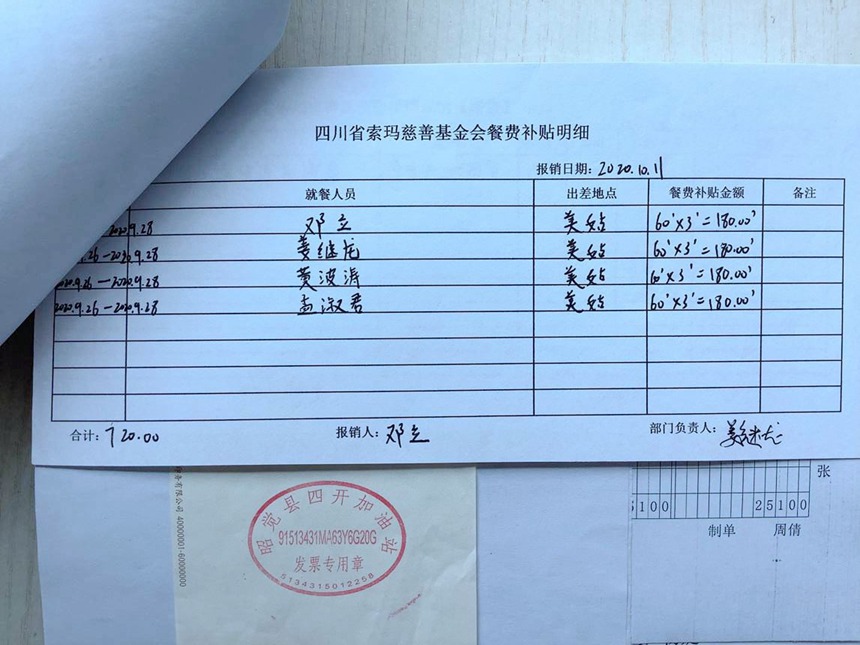 四川省索玛慈善基金会餐费补贴明细
报销日期：2020.10.11
就餐人员 出差地点 餐费补贴金额 备注
2020.9.28 邓立 美姑 60×3=180.00
.26-2020.9.28 姜继龙 美姑 60×3=180.00
2020.9.26-2020.9.28 黄波涛 美姑 60×3=180.00
2020.9.26-2020.9.28 孟淑君 美姑 60×3=180.00
合计：720.00 报销人：邓立 部门负责人：姜继龙
张
5100 25100
制单 周倩
务有限公司 40000001-60000000
昭觉县四开加油站
91513431MA63Y6G20G
发票专用章
5134315012258